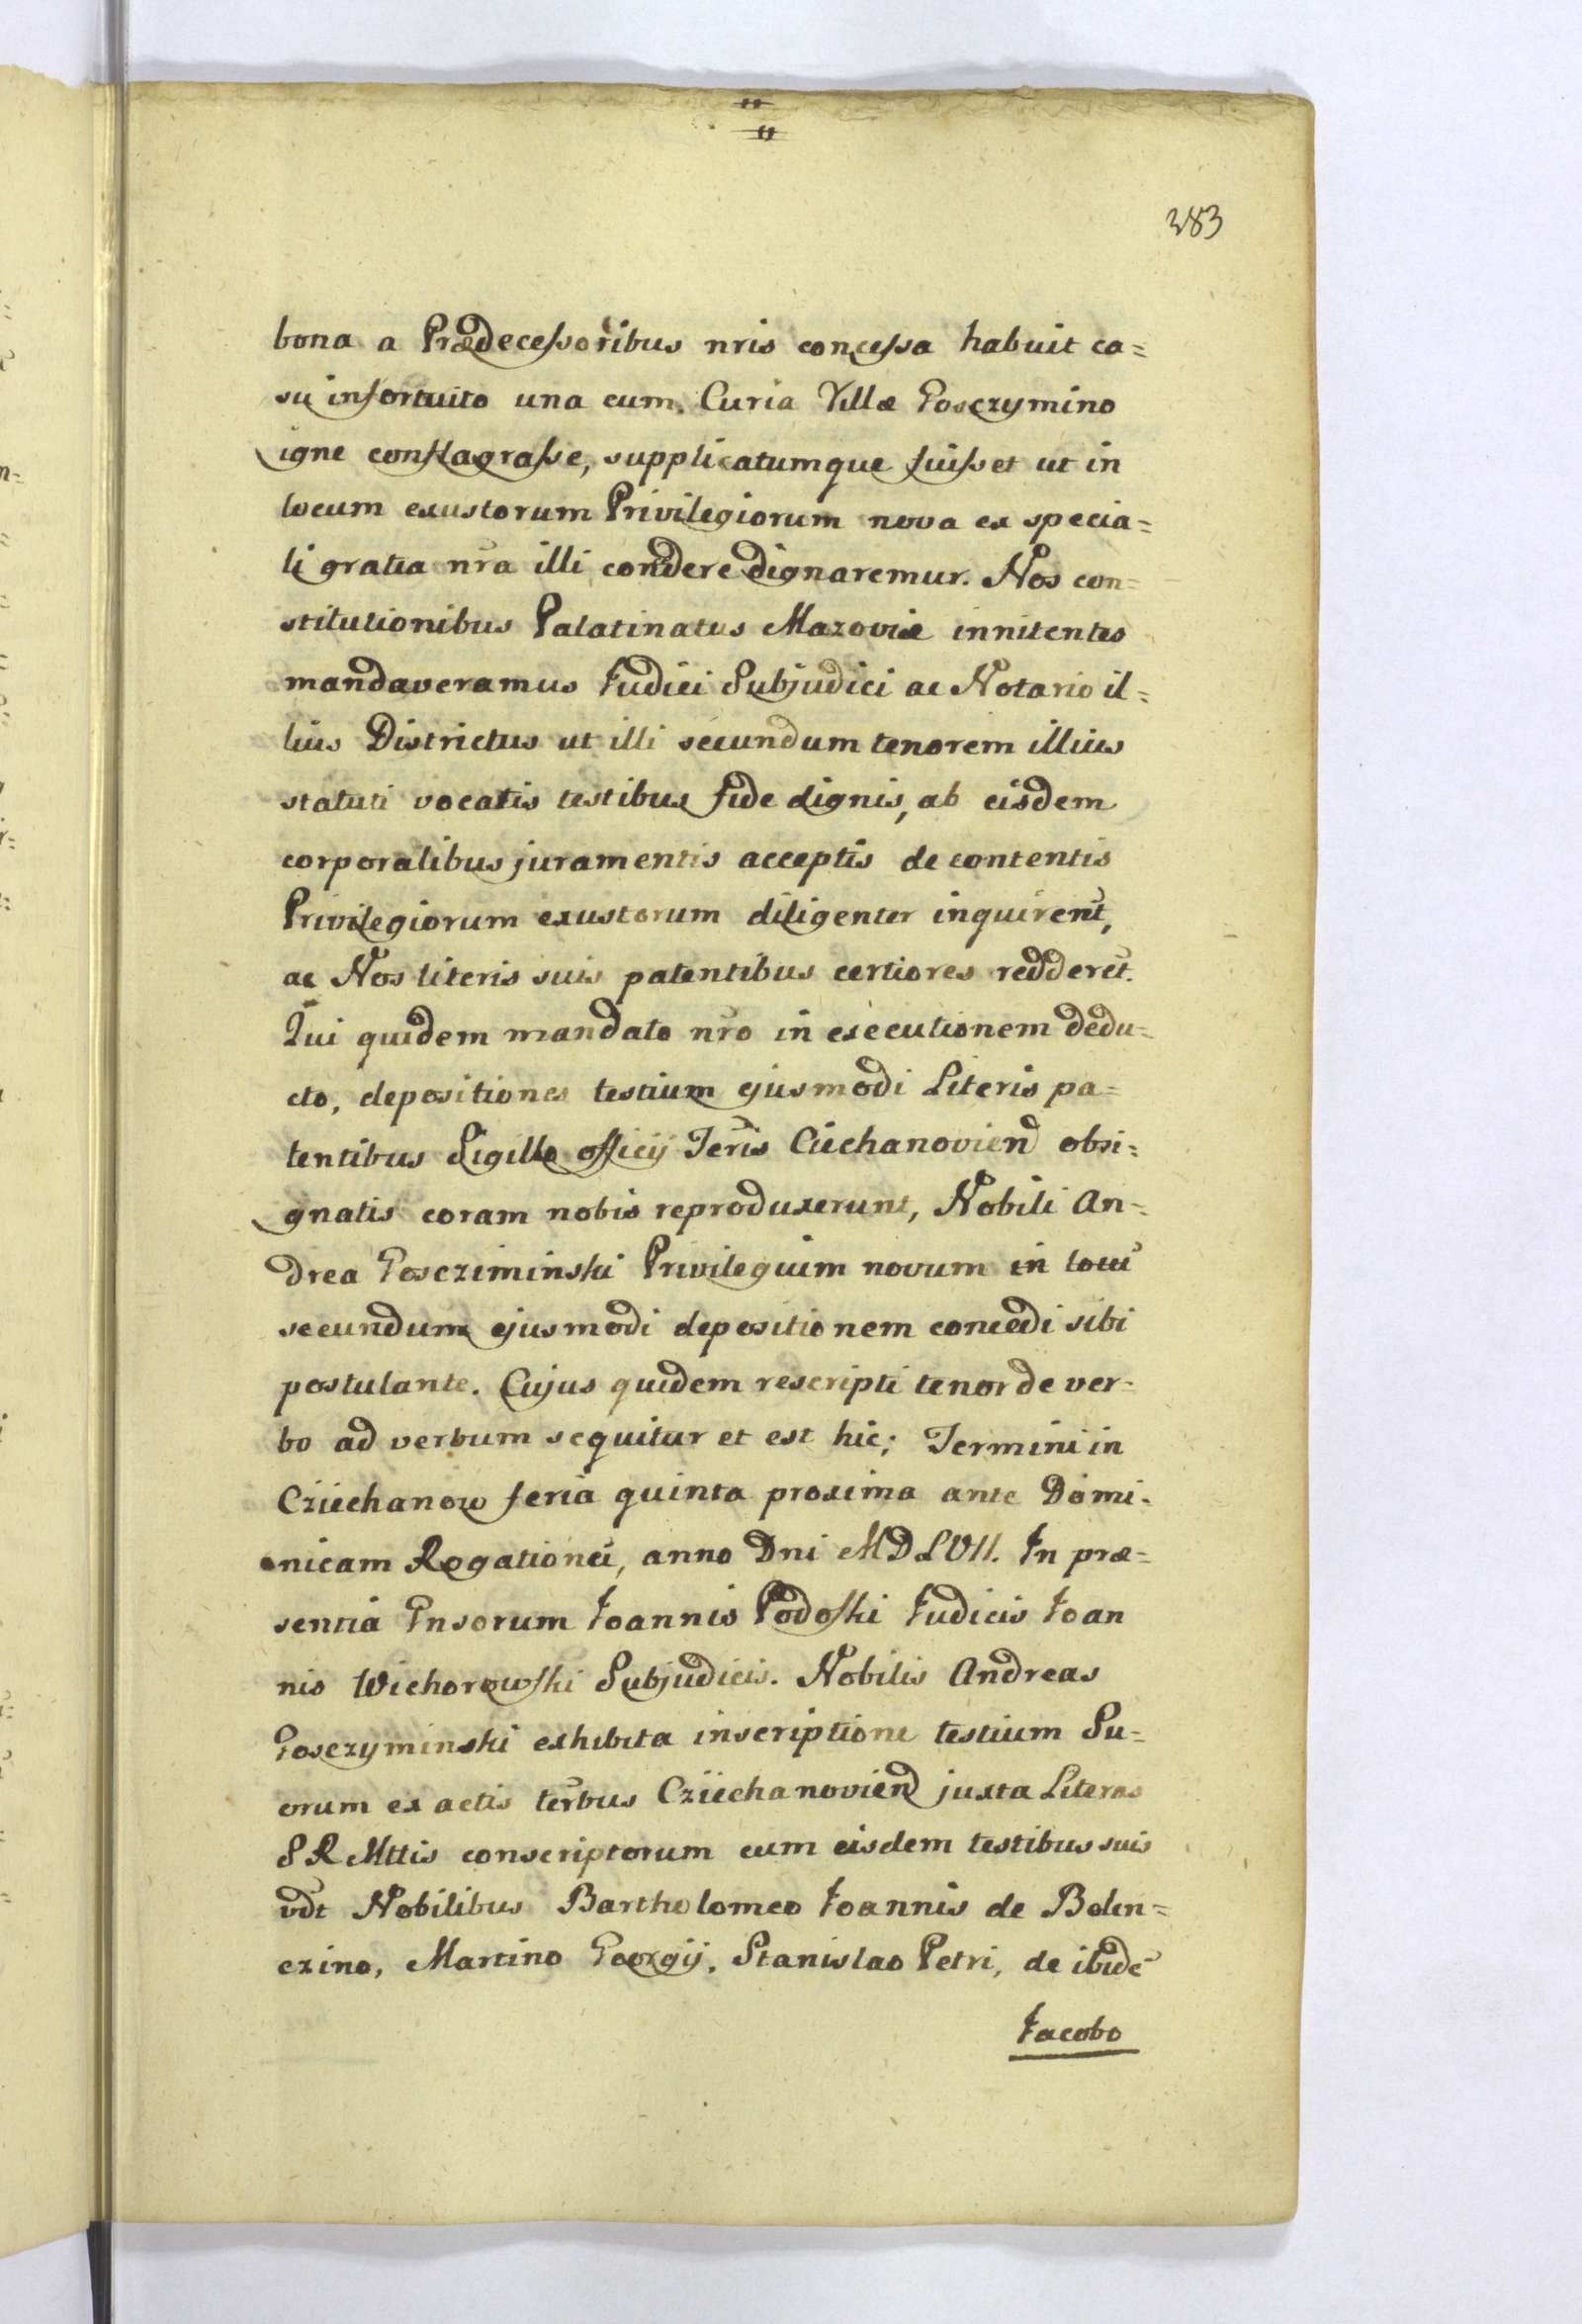 383
bona a Prædecessoribus nris concessa habuit ca=
su infortuito una cum Curia Villæ Gosczymino
igne conflagrasse, supplicatumque fuisset ut in
locum exustorum Privilegiorum nova ex specia=
li gratia nra illi condere dignaremur. Nos con=
stitutionibus Palatinatus Mazoviæ innitentes
mandaveramus Judici Subjudici ac Notario il=
lius Districtus ut illi secundum tenorem illius
statuti vocatis testibus fide dignis, ab eisdem
corporalibus juramentis acceptis de contentis
Privilegiorum exustorum diligenter inquirent,
ac Nos literis suis patentibus certiores redderet.
Qui quidem mandato nro in executionem dedu=
cto, depositiones testium ejusmodi Literis pa=
tentibus Sigillo officij Terris Ciechanovien obsi=
gnatis coram nobis reproduxerunt, Nobili An=
drea Goscziminski Privilegium novum in locu
secundum ejusmodi depositionem concedi sibi
postulante. Cujus quidem rescripti tenor de ver=
bo ad verbum sequitur et est hic; Termini in
Cziechanow feria quinta proxima ante Domi=
nicam Rogationũ, anno Dni MDLVII. In præ=
sentia Gnsorum Joannis Podoski Judicis Joan
nis Wichorowski Subjudicis. Nobilis Andreas
Gosczyminski exhibita inscriptione testium Su=
orum ex actis terrbus Cziechanovien juxta Literas
S R Mttis conscriptorum cum eisdem testibus suis
vdt Nobilibus Bartholomeo Joannis de Bolen=
czino, Martino Georgij, Stanislao Petri, de ibidẽ
Jacobo